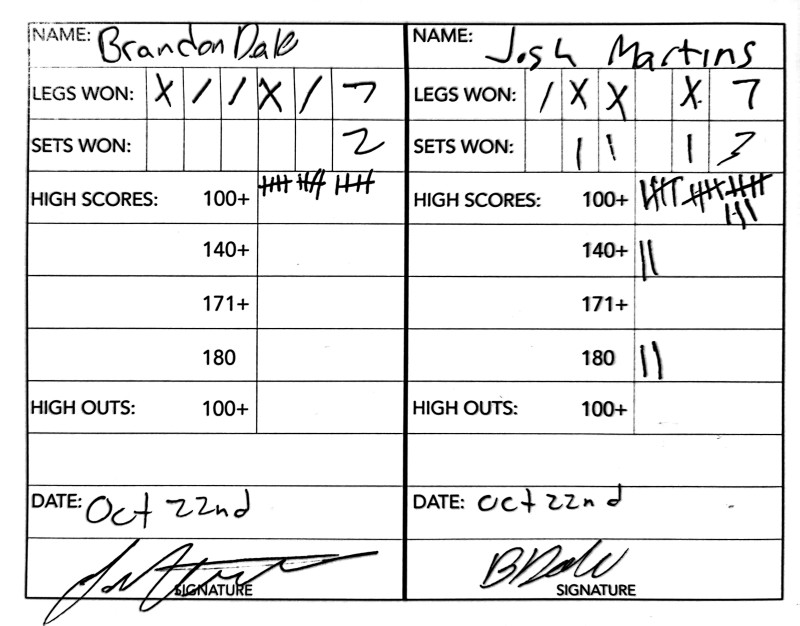 NAME: Brandon Dale
LEGS WON: X / / X / 7
SETS WON: 2
HIGH SCORES: 100+ 卌 卌 卌
140+
171+
180
HIGH OUTS: 100+
DATE: Oct 22nd
SIGNATURE
NAME: Josh Martins
LEGS WON: / X X X 7
SETS WON: | | | 3
HIGH SCORES: 100+ 卌 卌 卌 |||
140+ ||
171+
180 ||
HIGH OUTS: 100+
DATE: Oct 22nd
BDale
SIGNATURE